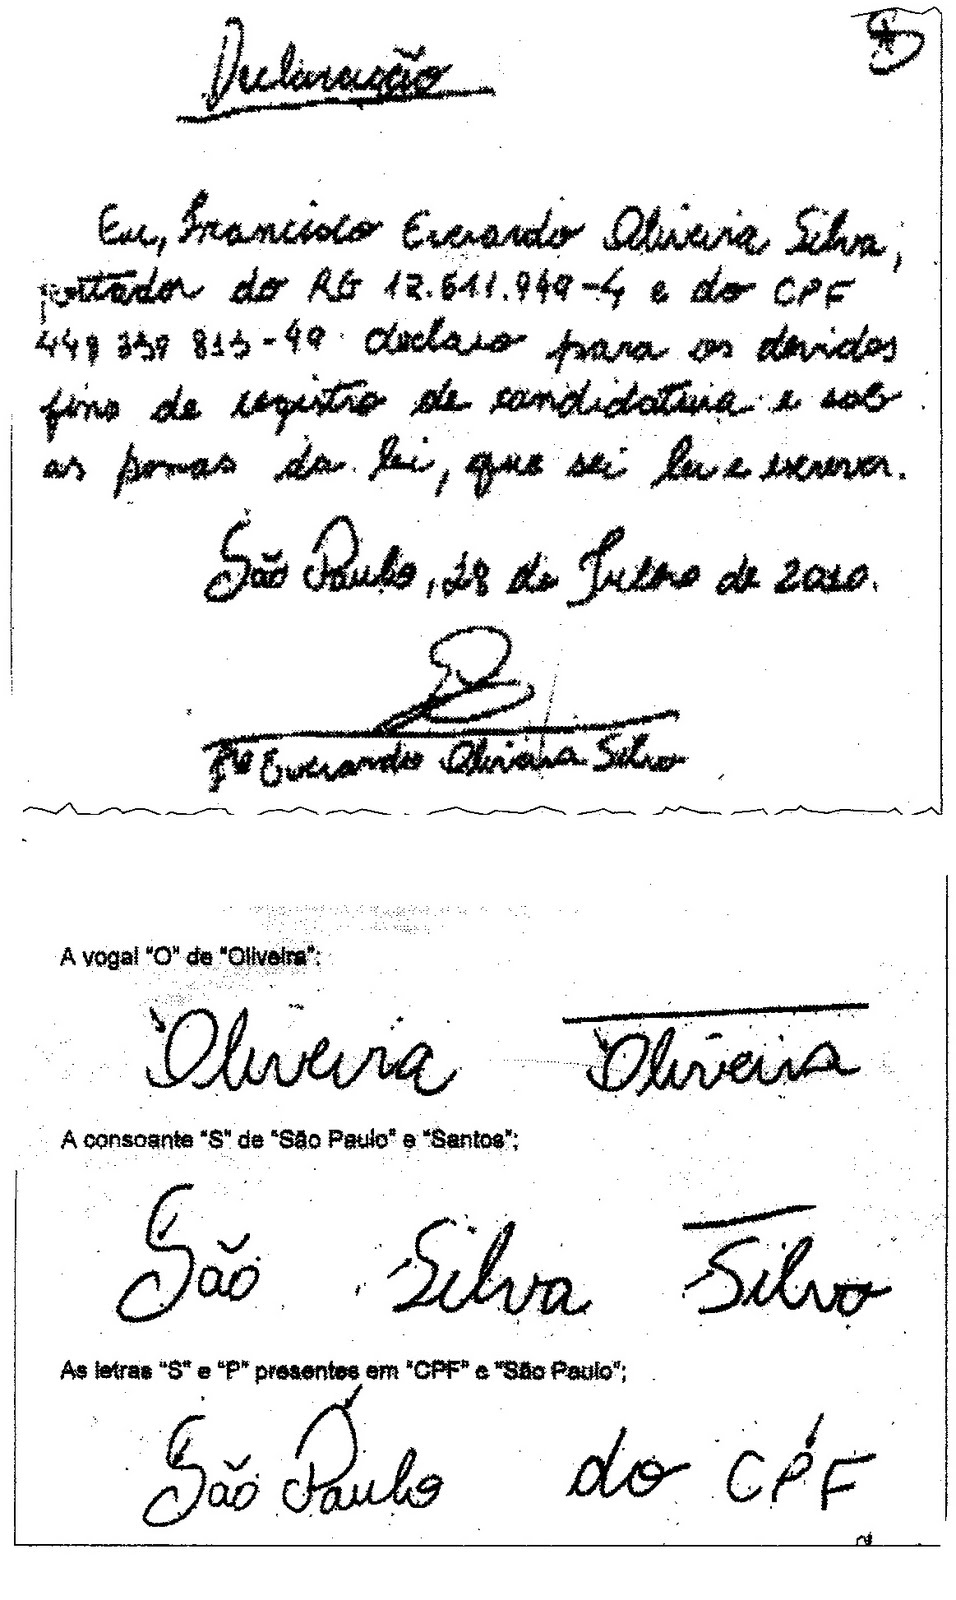 Declaração
Eu, Francisco Everardo Oliveira Silva,
portador do RG 12.611.949-4 e do CPF
448 339 813-49 declaro para os devidos
fins de registro de candidatura e sob
as penas da lei, que sei ler e escrever.
São Paulo, 28 de Julho de 2010.
Everardo Oliveira Silva
A vogal "O" de "Oliveira":
Oliveira Oliveira
A consoante "S" de "São Paulo" e "Santos";
São Silva Silva
As letras "S" e "P" presentes em "CPF" e "São Paulo";
São Paulo do CPF